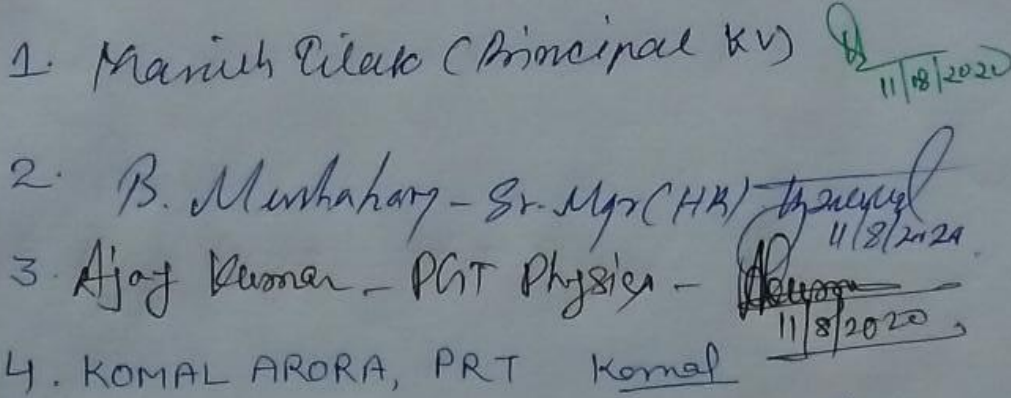 1. Manish Tilak (Principal KV)
11/08/2020
2. B. Mushahary - Sr. Mgr (HR)
11/8/2020
3. Ajay Kumar - PGT Physics -
11/8/2020,
4. KOMAL ARORA, PRT Komal